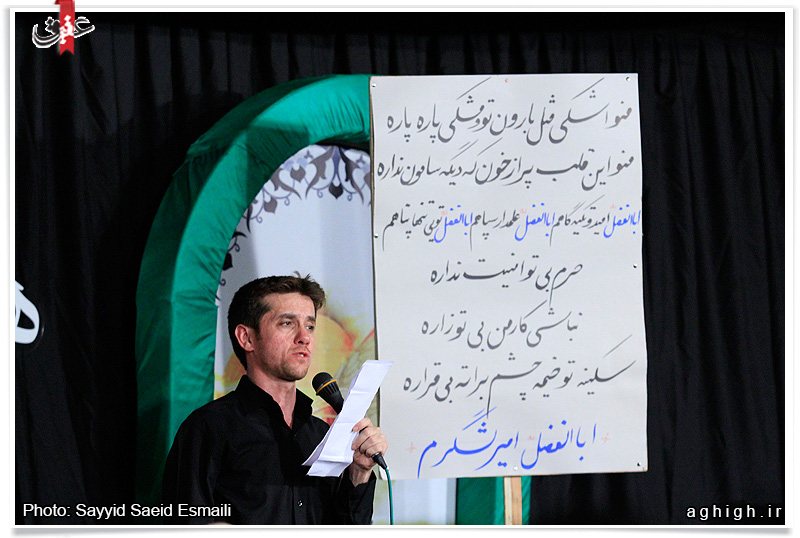 عقیق
منو اشکی مثل بارون تو و مشکی پاره پاره
منو این قلب پر از خون که دیگه سامون نداره
اباالفضل امید و تکیه گاهم اباالفضل علمدار سپاهم اباالفضل تویی تنها پناهم
حرم بی تو امنیت نداره
نباشی کار من بی تو زاره
سکینه تو خیمه چشم براته بی قراره
اباالفضل امیر لشگرم
Photo: Sayyid Saeid Esmaili
aghigh.ir